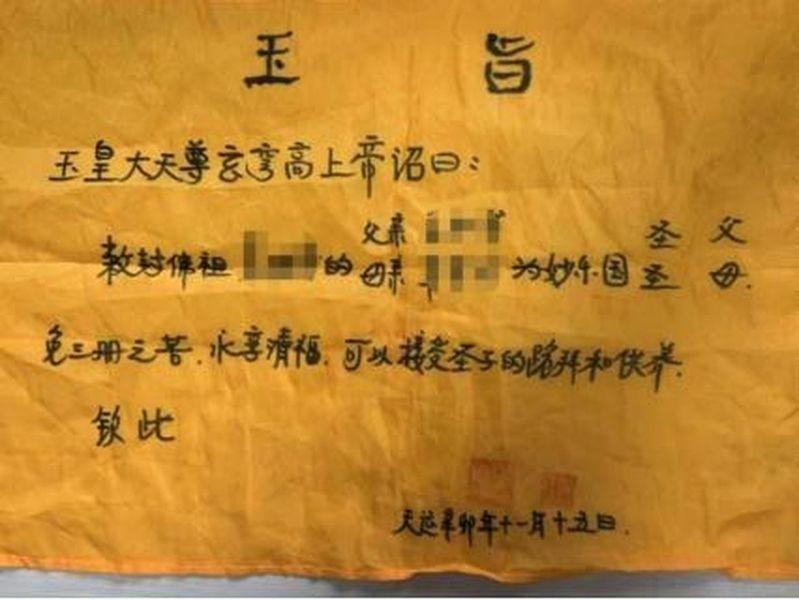 玉旨
玉皇大天尊玄穹高上帝诏曰：
父亲 圣父
敕封佛祖 的母亲 为妙乐国圣母.
免三册之苦.永享清福.可以接受圣子的跪拜和供养.
钦此
天运辛卯年十一月十五日.